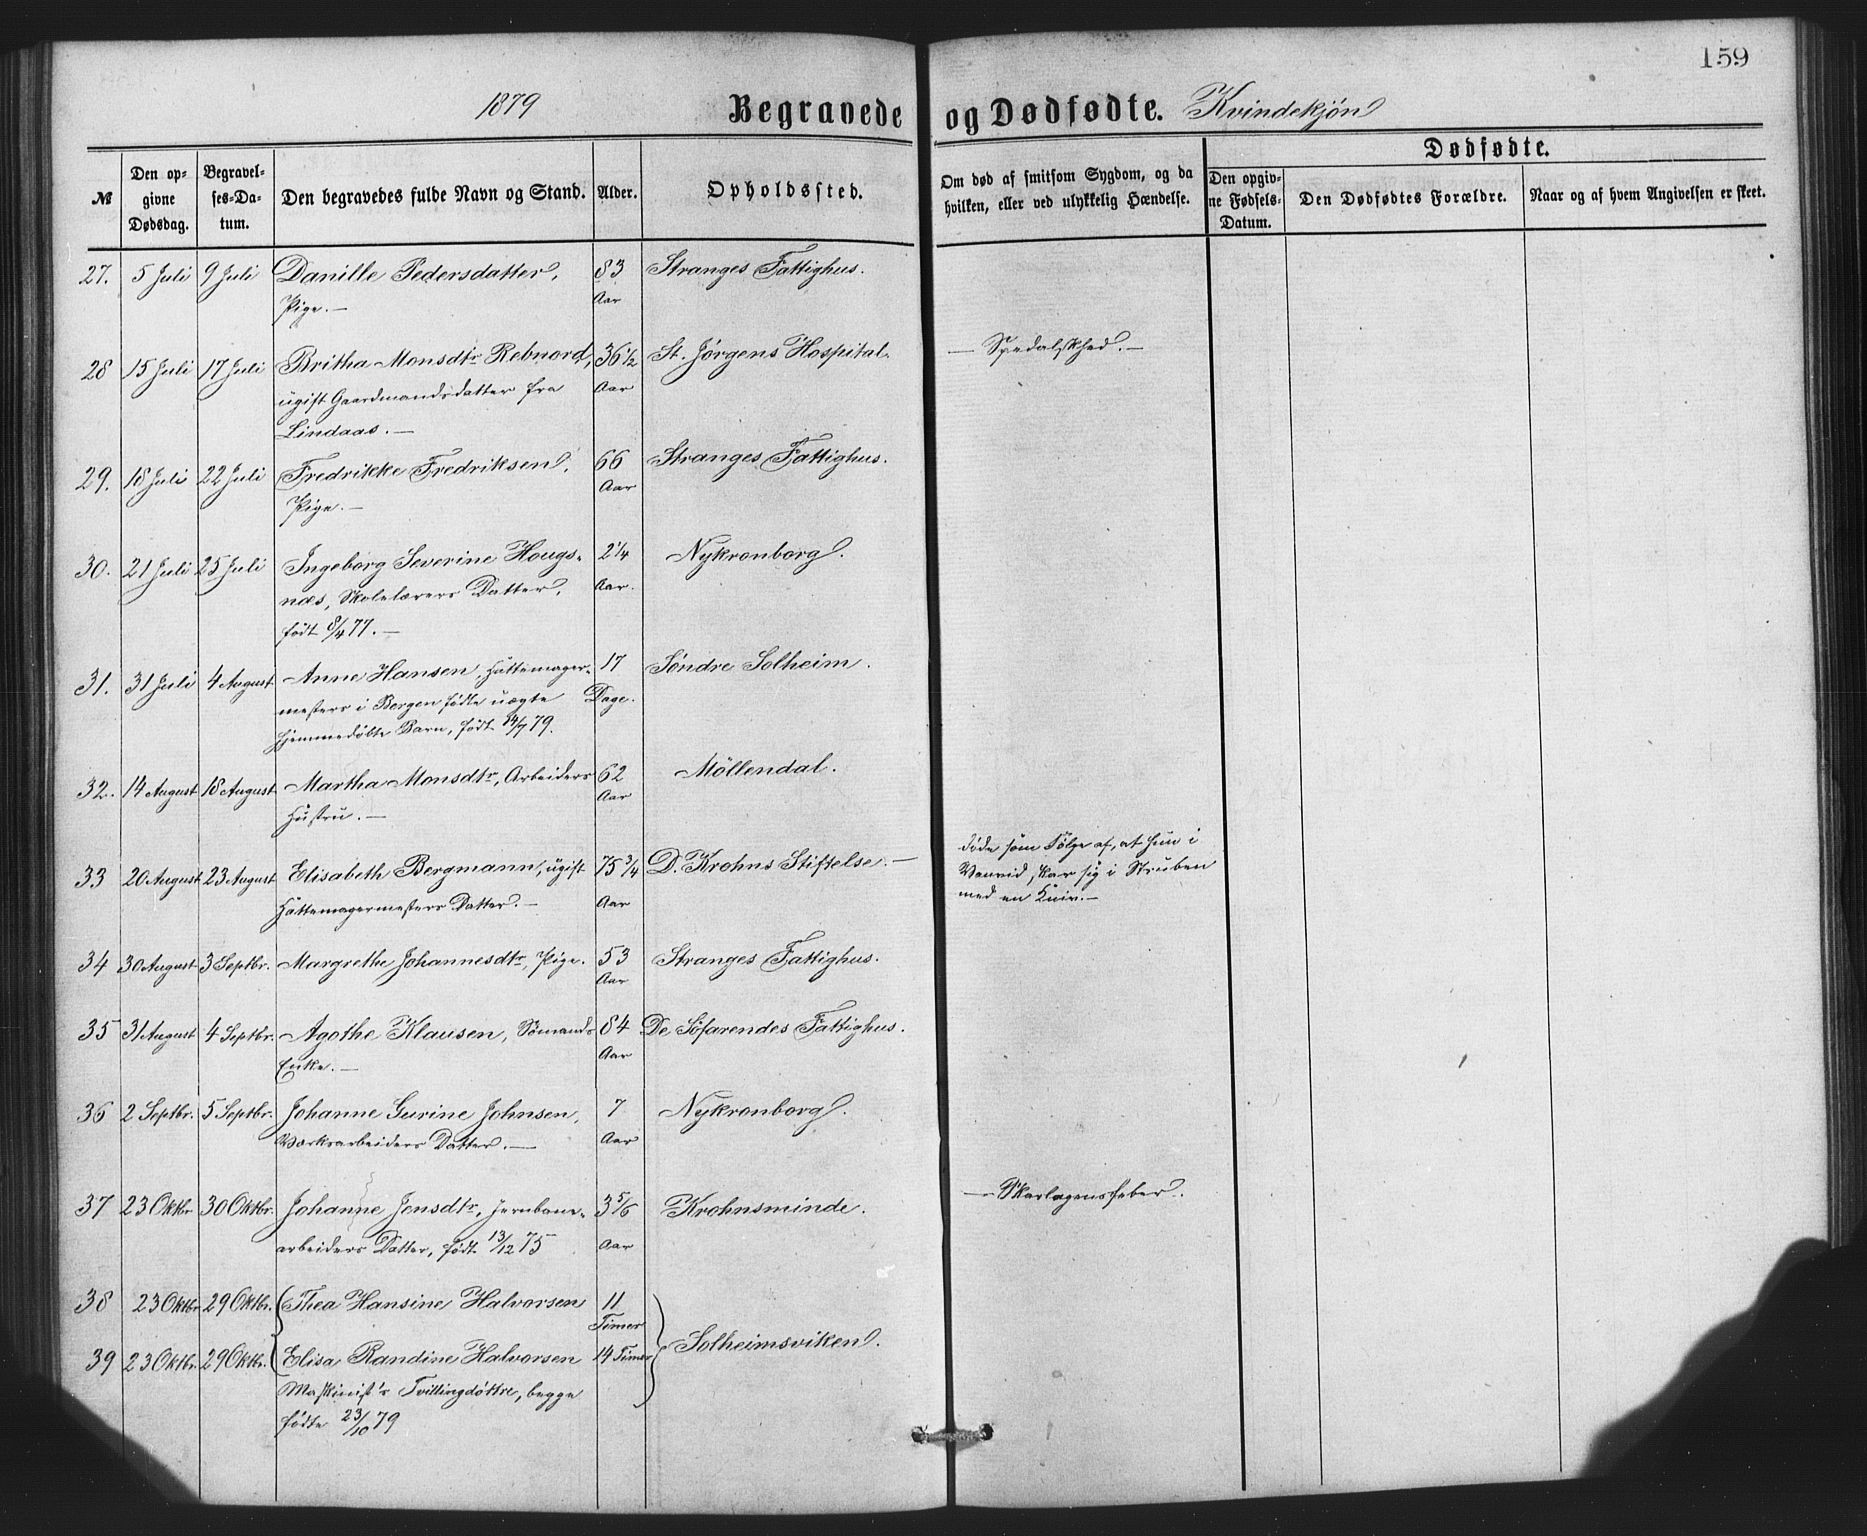 159
1879 Begravede og Dødfødte. Kvindekjøn
№
Den opgivne Dødsdag.
Begravelses-Datum.
Den begravedes fulde Navn og Stand.
Alder.
Opholdssted.
Om død af smitsom Sygdom, og da hvilken, eller ved ulykkelig Hændelse.
Dødfødte.
Den opgivne Fødsels-Datum.
Den Dødfødtes Forældre.
Naar og af hvem Angivelsen er skeet.
27. 5 Juli 9 Juli Danille Pedersdatter, 83 Stranges Fattighus.
Pige.— Aar
28 15 Juli 17 Juli Britha Monsdtr Rebnord, 36 1/2 St. Jørgens Hospital. — Spedalskhed.—
ugift Gaardmandsdatter fra Aar
Lindaas.—
29. 18 Juli 22 Juli Fredrikke Fredriksen, 66 Stranges Fattighus.
Pige.— Aar
30. 21 Juli 25 Juli Ingeborg Severine Hougs- 2 1/4 Nykronborg.
næs, Skolelærers Datter, Aar.
født 8/4 77.—
31. 31 Juli 4 August Anne Hansen, Hattemager- 17 Søndre Solheim.
mesters i Bergen fødte uægte Dage.
hjemmedøbte Barn, født 14/7 79.
32. 14 August 18 August Martha Monsdtr, Arbeiders 62 Möllendal.
Hustru.— Aar
33 20 August 23 August Elisabeth Bergmann, ugift 75 3/4 D. Krohns Stiftelse.— døde som Følge af, at hun i
Hattemagermesters Datter.— Aar Vanvid, skar sig i Struben
med en Kniv.—
34 30 August 3 Septbr. Margrethe Johannesdtr, Pige. 53 Stranges Fattighus.
Aar
35 31 August 4 Septbr. Agothe Klausen, Sømands 84 De Söfarendes Fattighus.
Enke.— Aar
36 2 Septbr. 5 Septbr. Johanne Gurine Johnsen, 7 Nykronborg.
Værksarbeiders Datter.— Aar
37 23 Oktbr 30 Oktbr. Johanne Jonsdtr, Jernbane- 3 5/6 Krohnsminde. — Skarlagensfeber.
arbeiders Datter, født 13/12 75 Aar
38 23 Oktbr 29 Oktbr. Thea Hansine Halvorsen 11
Timer
Solheimsviken.
39 23 Oktbr. 29 Oktbr. Elisa Randine Halvorsen 14 Timer
Maskinist's Tvillingdøttre, begge
fødte 23/10 79